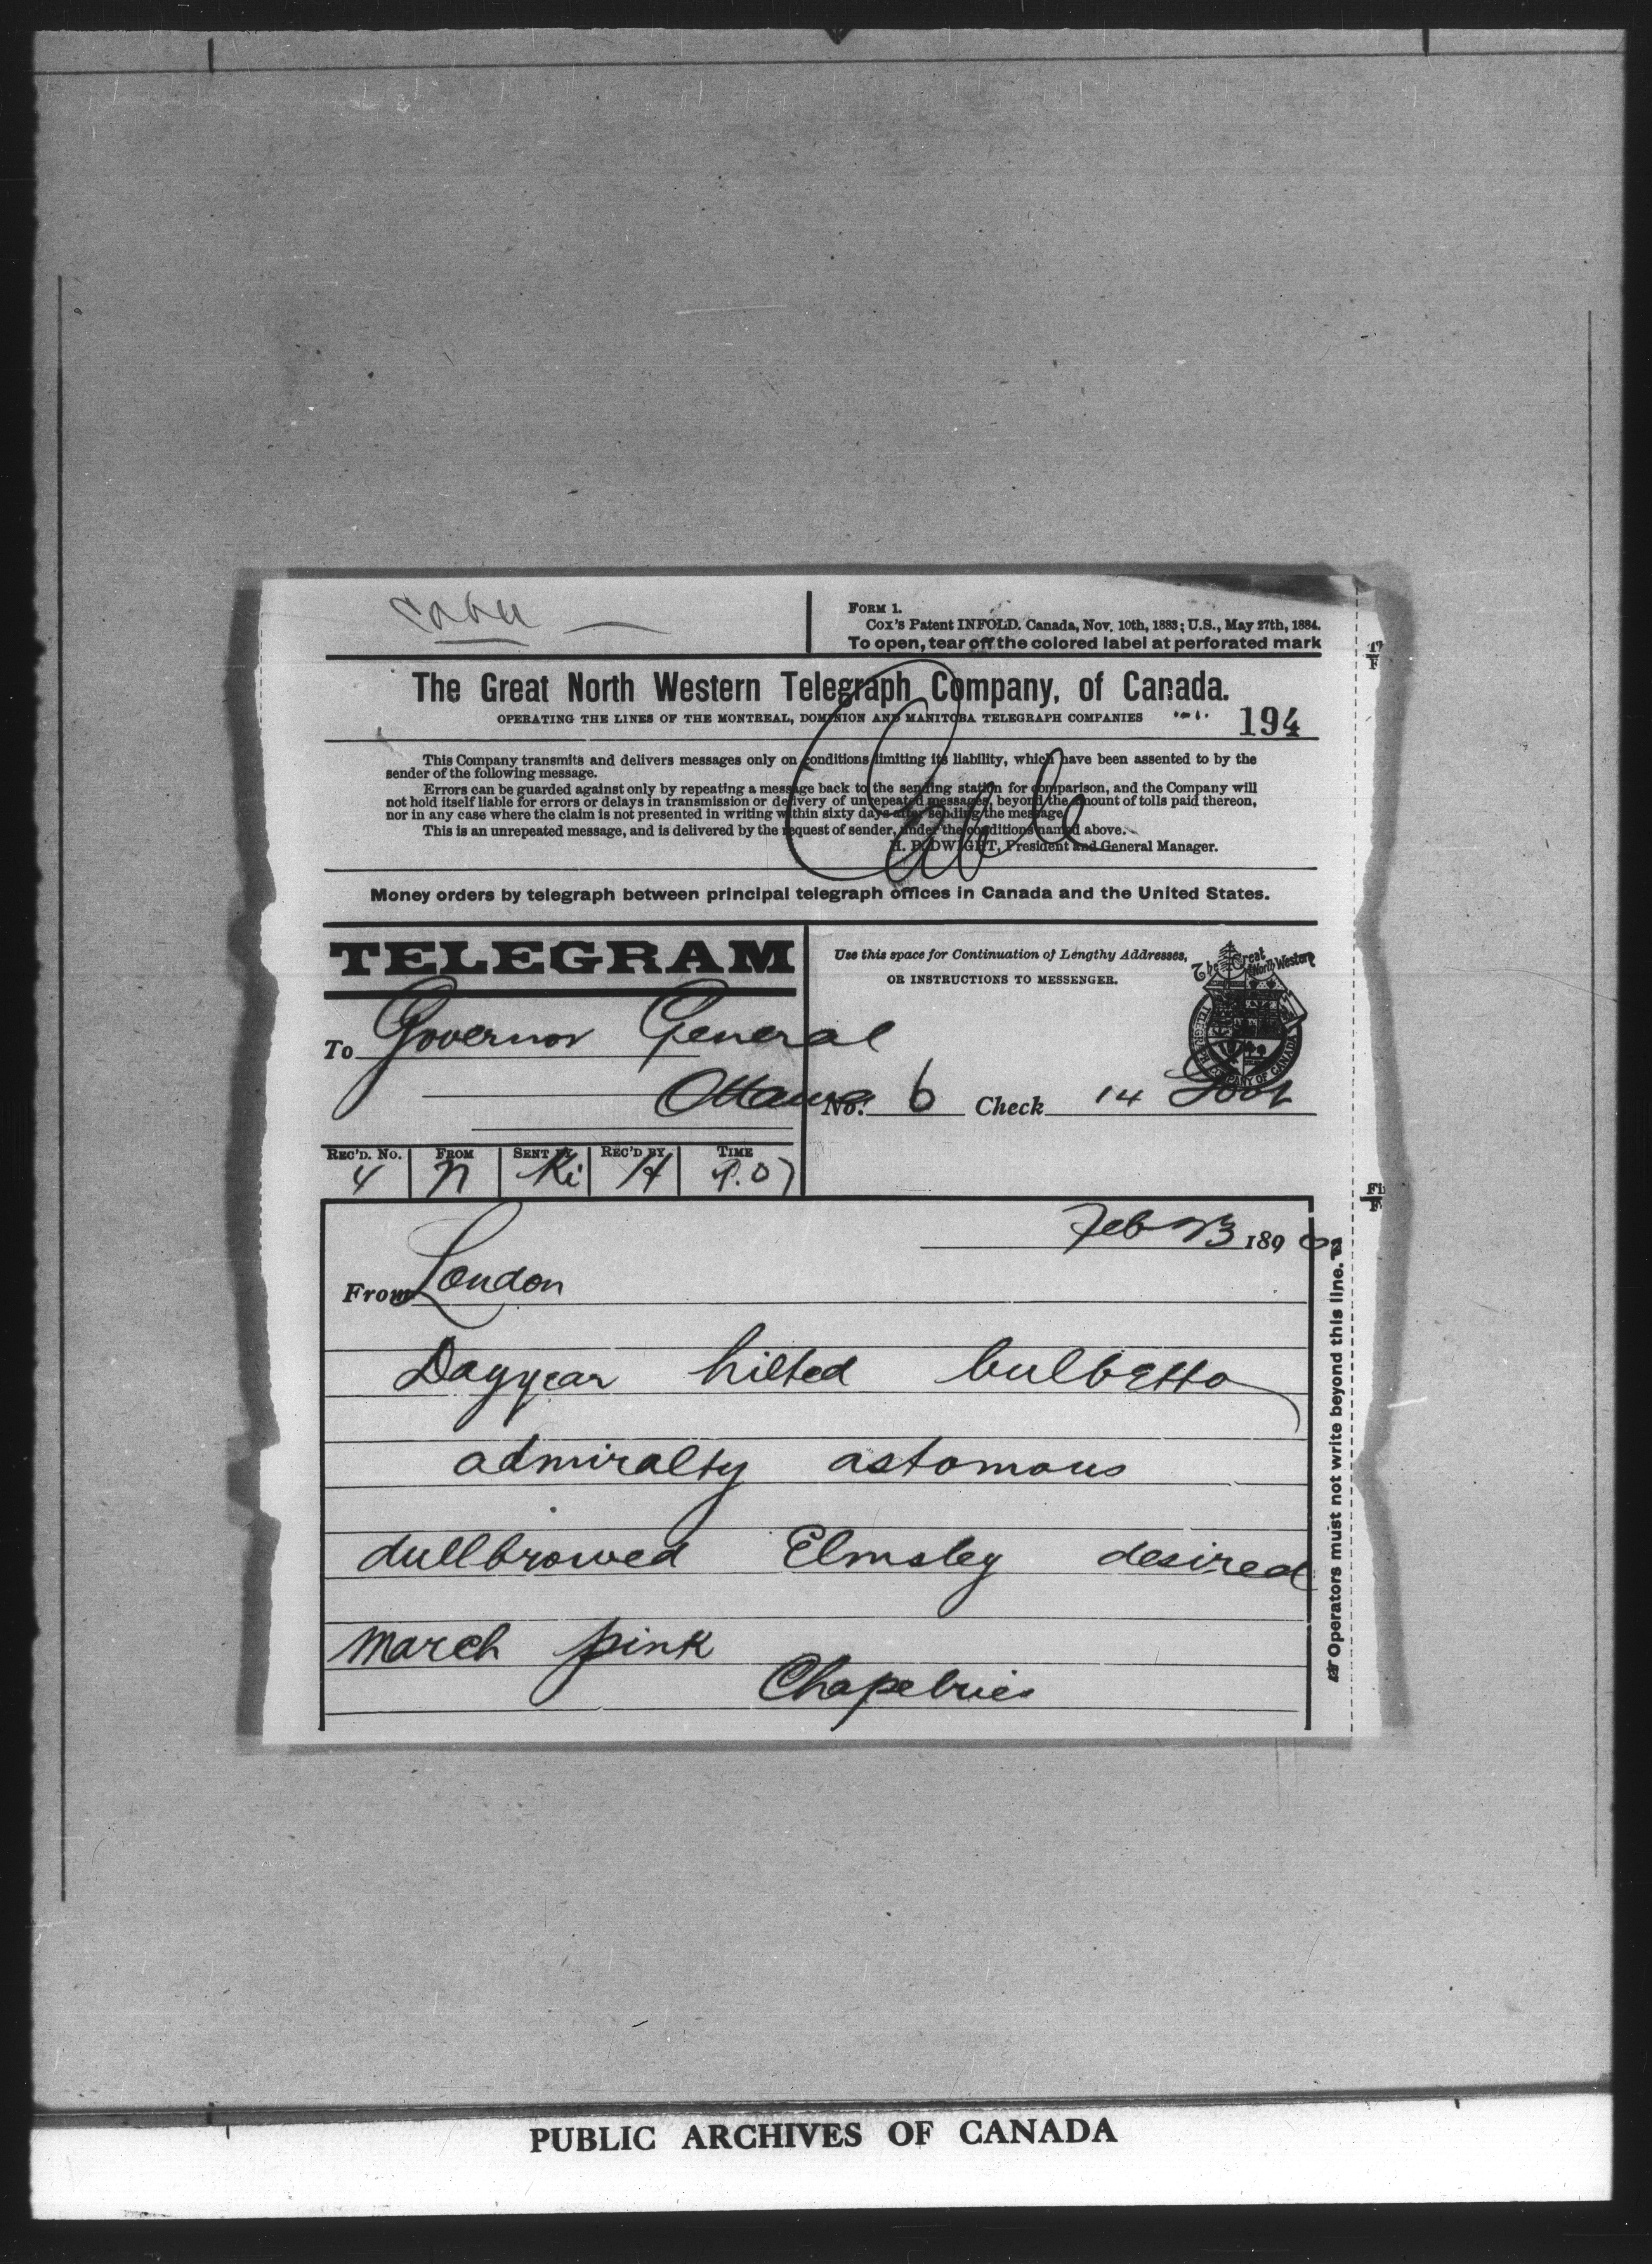 Cable
FORM 1.
Cox's Patent INFOLD. Canada, Nov. 10th, 1883; U.S., May 27th, 1884.
To open, tear off the colored label at perforated mark
The Great North Western Telegraph Company, of Canada.
OPERATING THE LINES OF THE MONTREAL, DOMINION AND MANITOBA TELEGRAPH COMPANIES
194
This Company transmits and delivers messages only on conditions limiting its liability, which have been assented to by the
sender of the following message.
Errors can be guarded against only by repeating a message back to the sending station for comparison, and the Company will
not hold itself liable for errors or delays in transmission or delivery of unrepeated messages, beyond the amount of tolls paid thereon,
nor in any case where the claim is not presented in writing within sixty days after sending the message.
This is an unrepeated message, and is delivered by the request of sender, under the conditions named above.
H. P. DWIGHT, President and General Manager.
Cable
Money orders by telegraph between principal telegraph offices in Canada and the United States.
TELEGRAM
Use this space for Continuation of Lengthy Addresses,
OR INSTRUCTIONS TO MESSENGER.
The Great North Western
TELEGRAPH COMPANY OF CANADA
To Governor General
Ottawa
No. 6 Check 14
REC'D. No. FROM SENT BY REC'D BY TIME
4 N Ki H 9.07
Feb 23 189
From London
Dagyear hilted bulbetto
admiralty astomous
dullbrowed Elmsley desired
march pink
Chapelries
Operators must not write beyond this line.
PUBLIC ARCHIVES OF CANADA